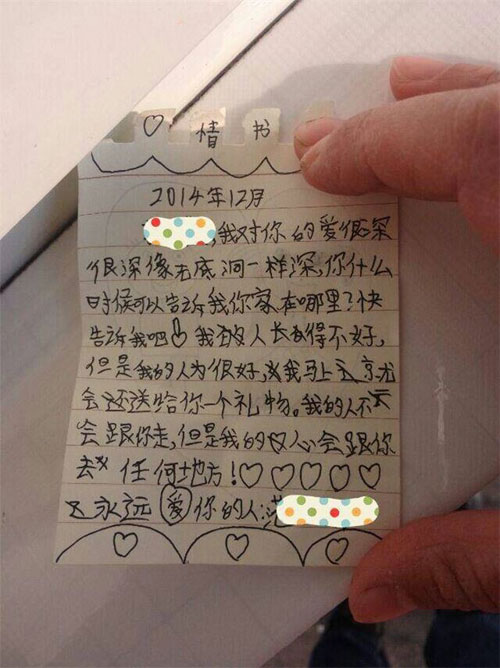 ♡ 情 书
2014年12月
,我对你的爱很深
很深像无底洞一样深,你什么
时候可以告诉我你家在哪里?快
告诉我吧 我人长得不好,
但是我的人为很好,我马上
会还送给你一个礼物。我的人不
会跟你走,但是我的心会跟你
去任何地方!♡♡♡♡♡
永远爱你的人: